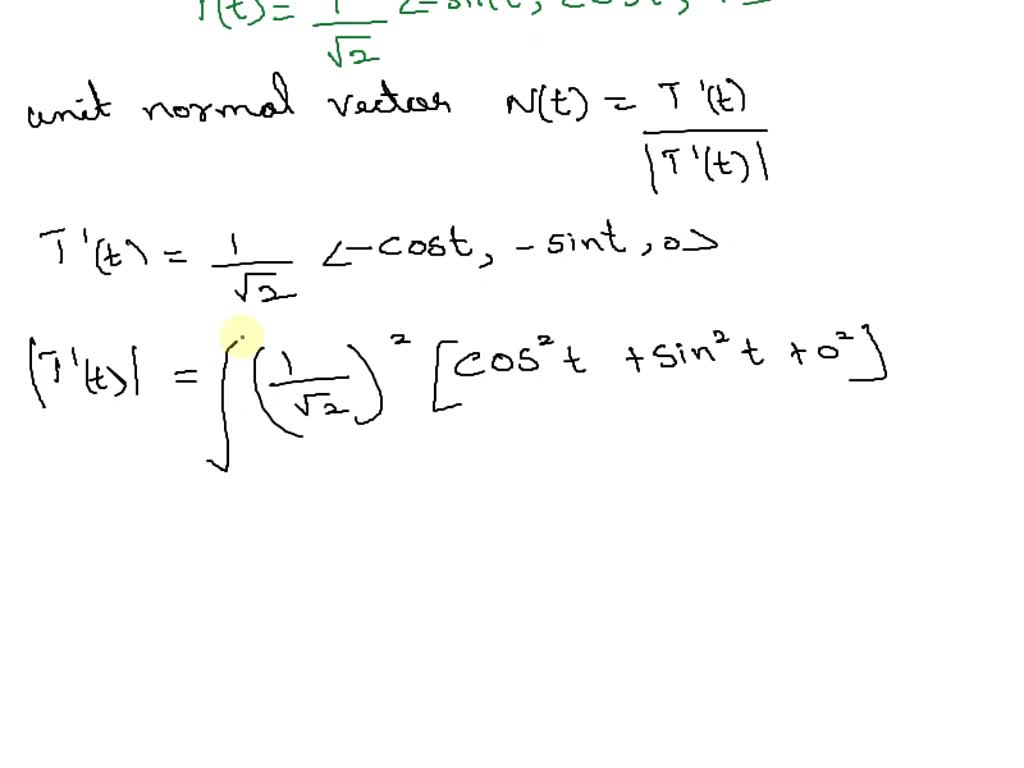 T(t) = 1/√2 <-sint, cost, 1>
unit normal vector N(t) = T'(t)/|T'(t)|
T'(t) = 1/√2 <-cost, -sint, 0>
|T'(t)| = √(1/√2)² [cos²t + sin²t + 0²]